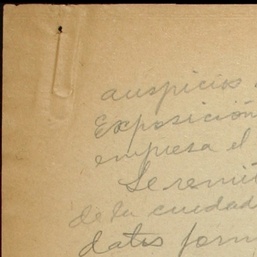 auspicios
Exposición
empresa el
Se remit
de la ciudad
datos form